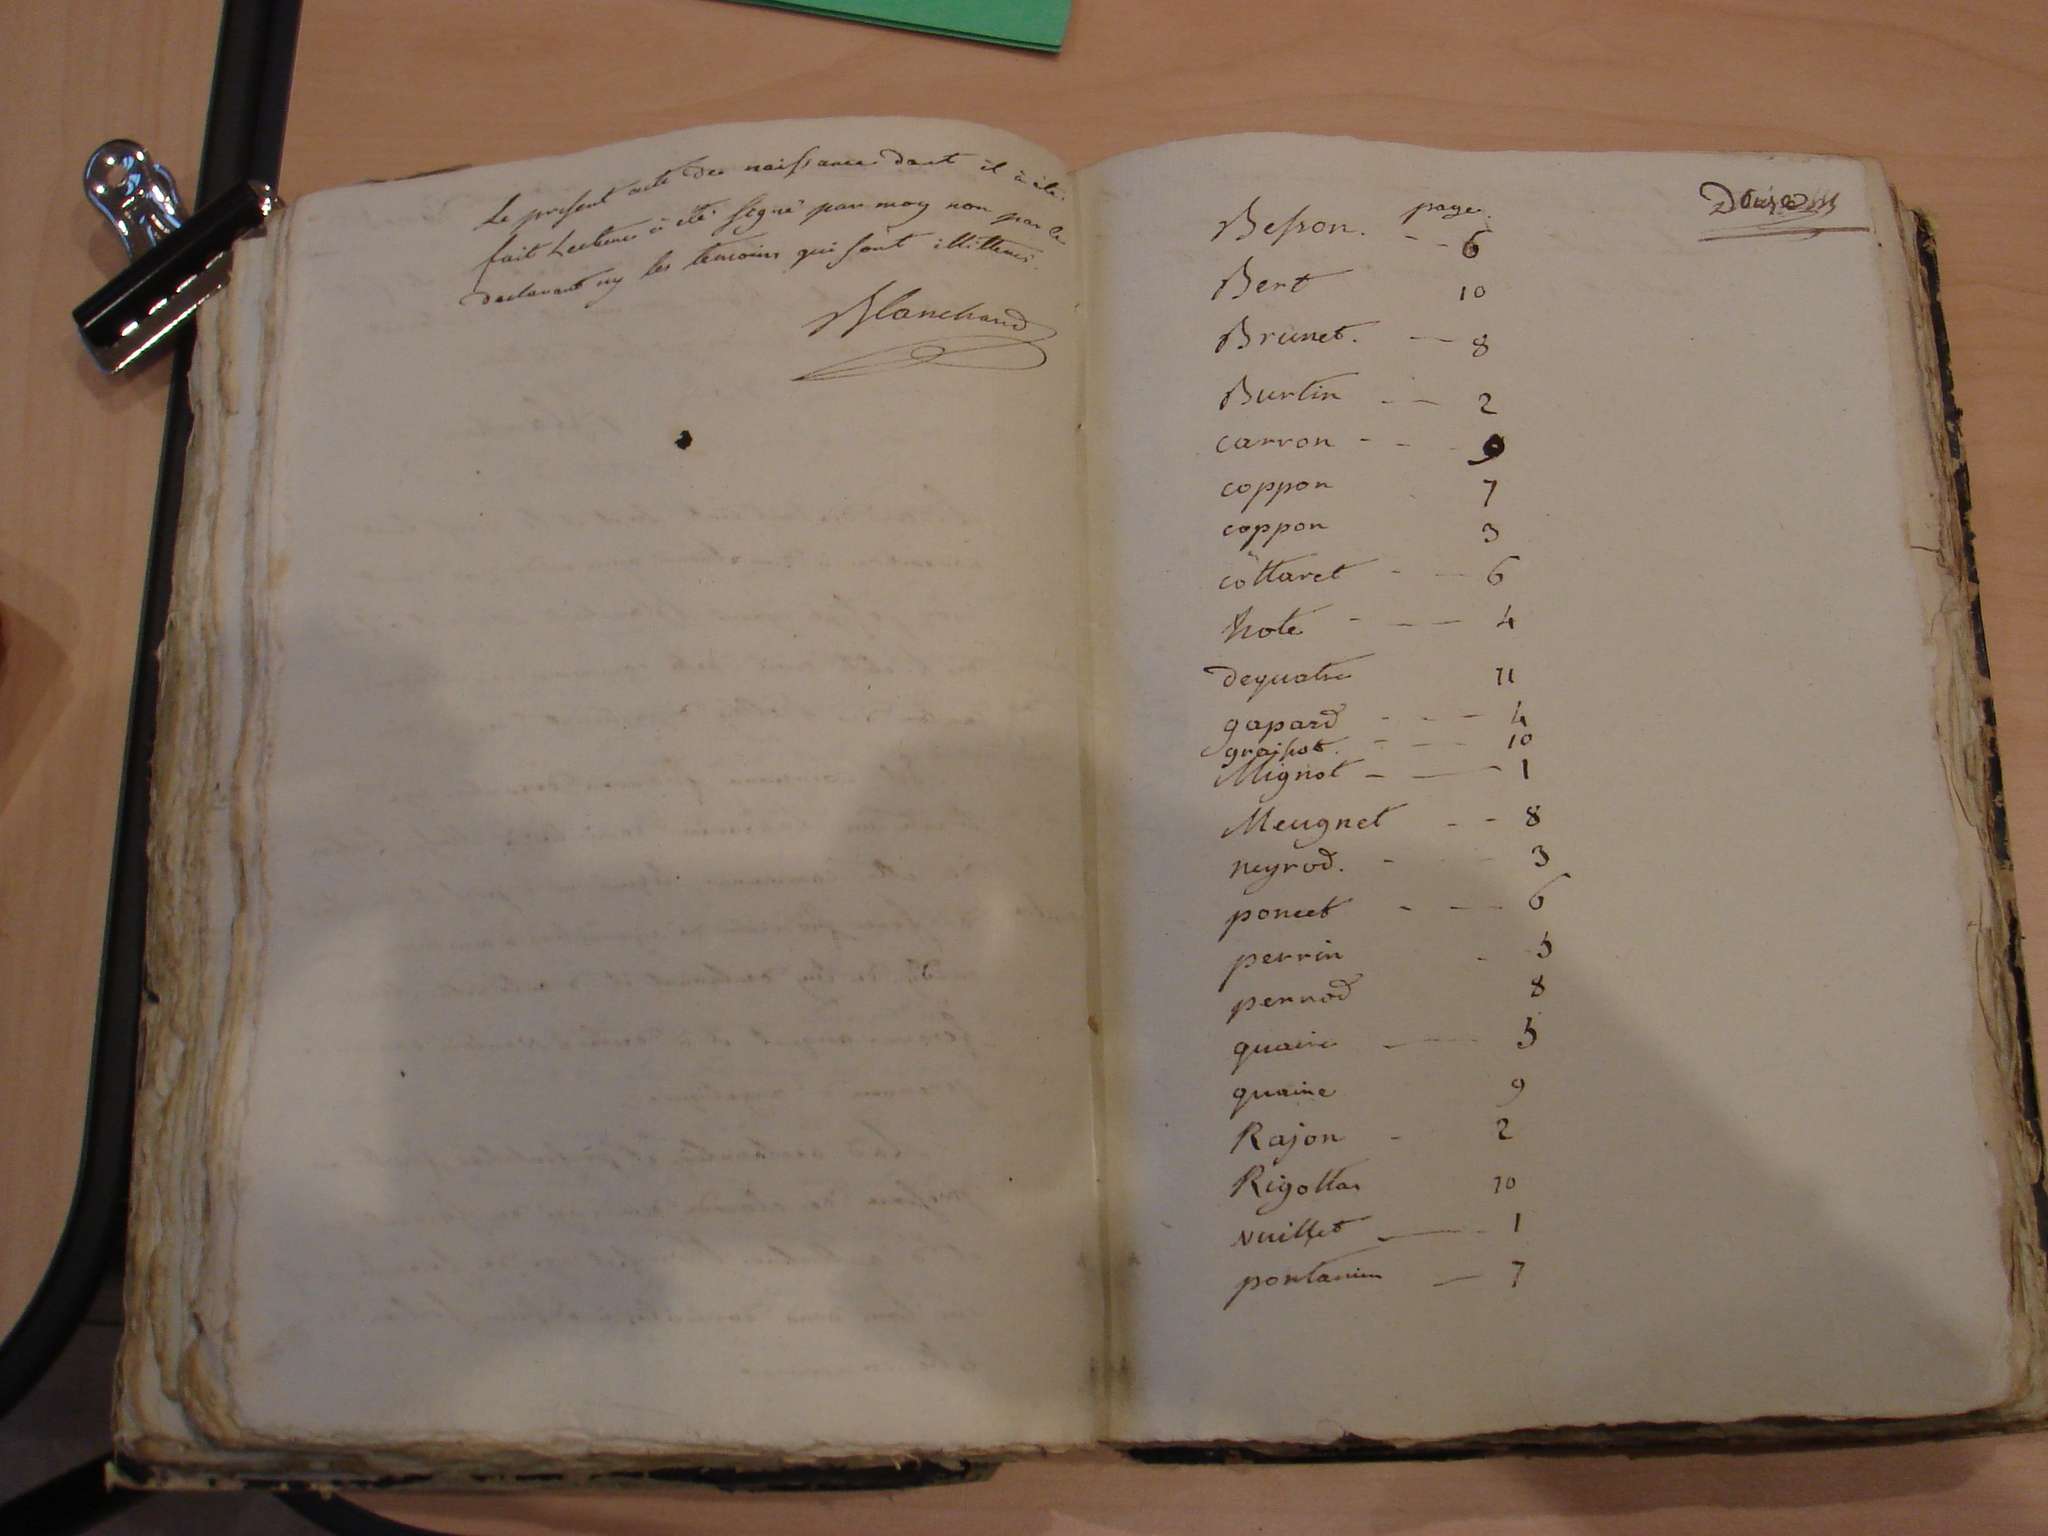 Le present acte de naissance dont il à été
fait Lecture à été signé par moy non par le
declarant ny les temoins qui sont illitteré.
Blanchard
page.
Besson. - - 6
Bert 10
Brunet. - 8
Burtin - - 2
carron - - 9
coppon 7
coppon 3
cottaret - - 6
hote - - - 4
dequatre 11
gapard - - - 4
graisot. - - 10
Mignot - - 1
Meugnet - - 8
neyrod. - 3
poncet - - - 6
perrin - 5
pernod 8
quaire - - 5
quaire 9
Rajon - 2
Rigottas 10
vuillet - - 1
pontanier - 7